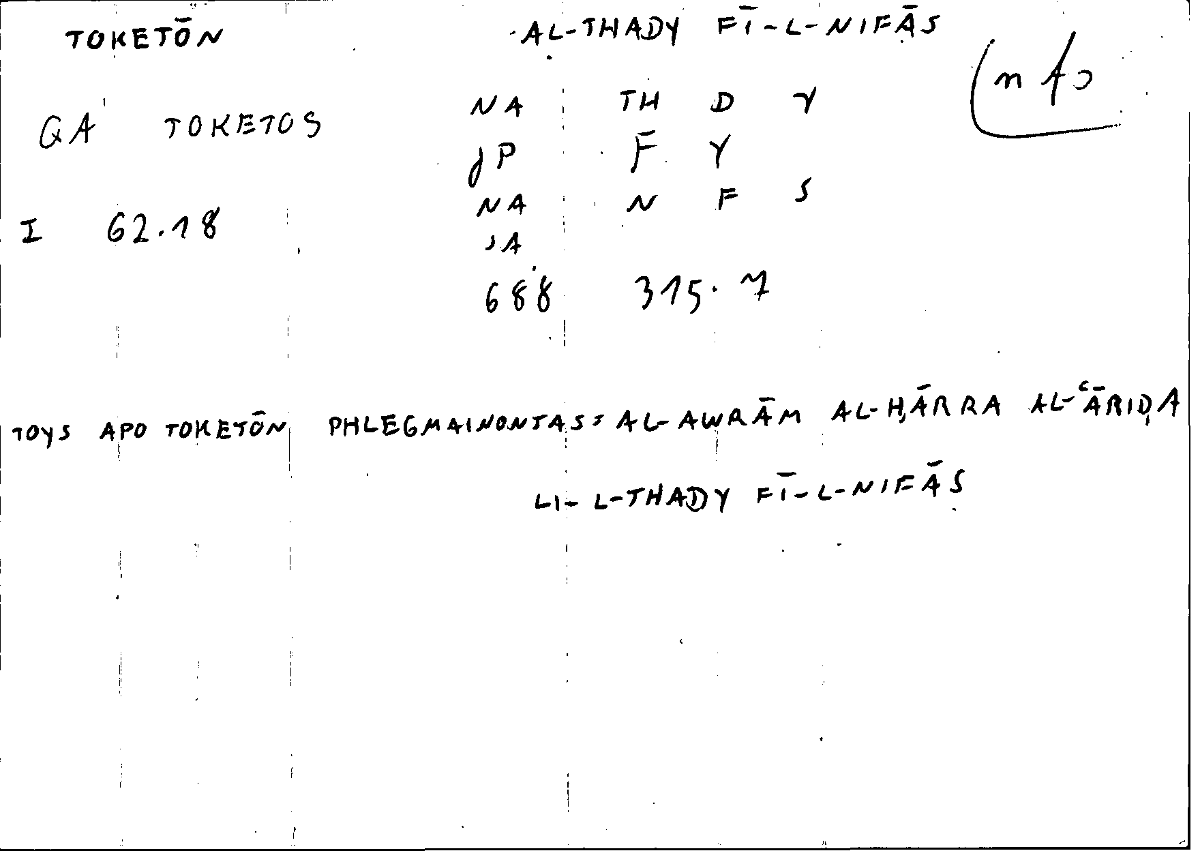 TOKETŌN AL-THADY FĪ-L-NIFĀS
(nfs
NA TH D Y
QA TOKETOS
JP F Y
NA N F S
I 62.18
JA
688 315.7
TOYS APO TOKETŌN PHLEGMAINONTAS: AL-AWRĀM AL-ḤĀRRA AL-ʿĀRIḌA
LI-L-THADY FĪ-L-NIFĀS